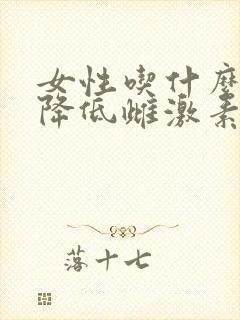 女性喫什麼
降低雌激素
落十七